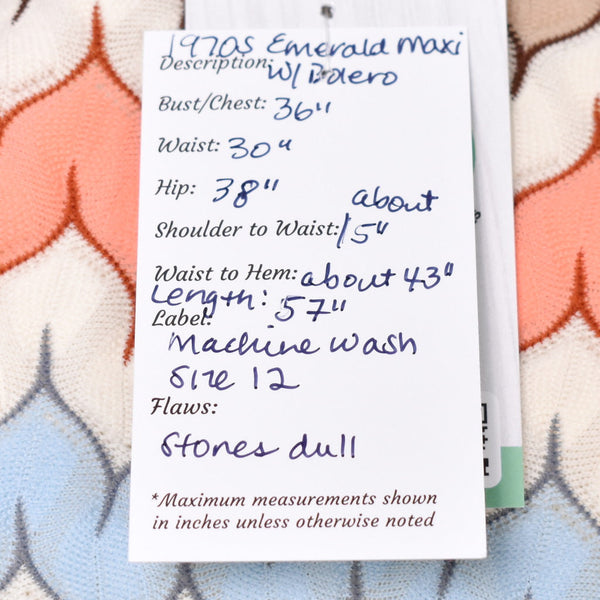 1970s Emerald Maxi
Description: W/ Bolero
Bust/Chest: 36"
Waist: 30"
Hip: 38"
about
Shoulder to Waist: 15"
Waist to Hem: about 43"
Length: 57"
Label:
Machine Wash
Size 12
Flaws:
Stones dull
*Maximum measurements shown
in inches unless otherwise noted